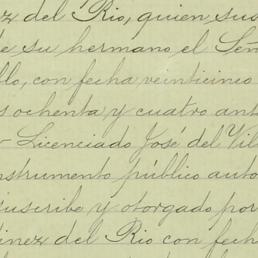 ez del Rio, quien sus
de su hermano el Señ
llo, con fecha veinticinco
s ochenta y cuatro ant
- Licenciado José del Vil
nstrumento público auto
suscribe y otorgado por
tinez del Rio con fech